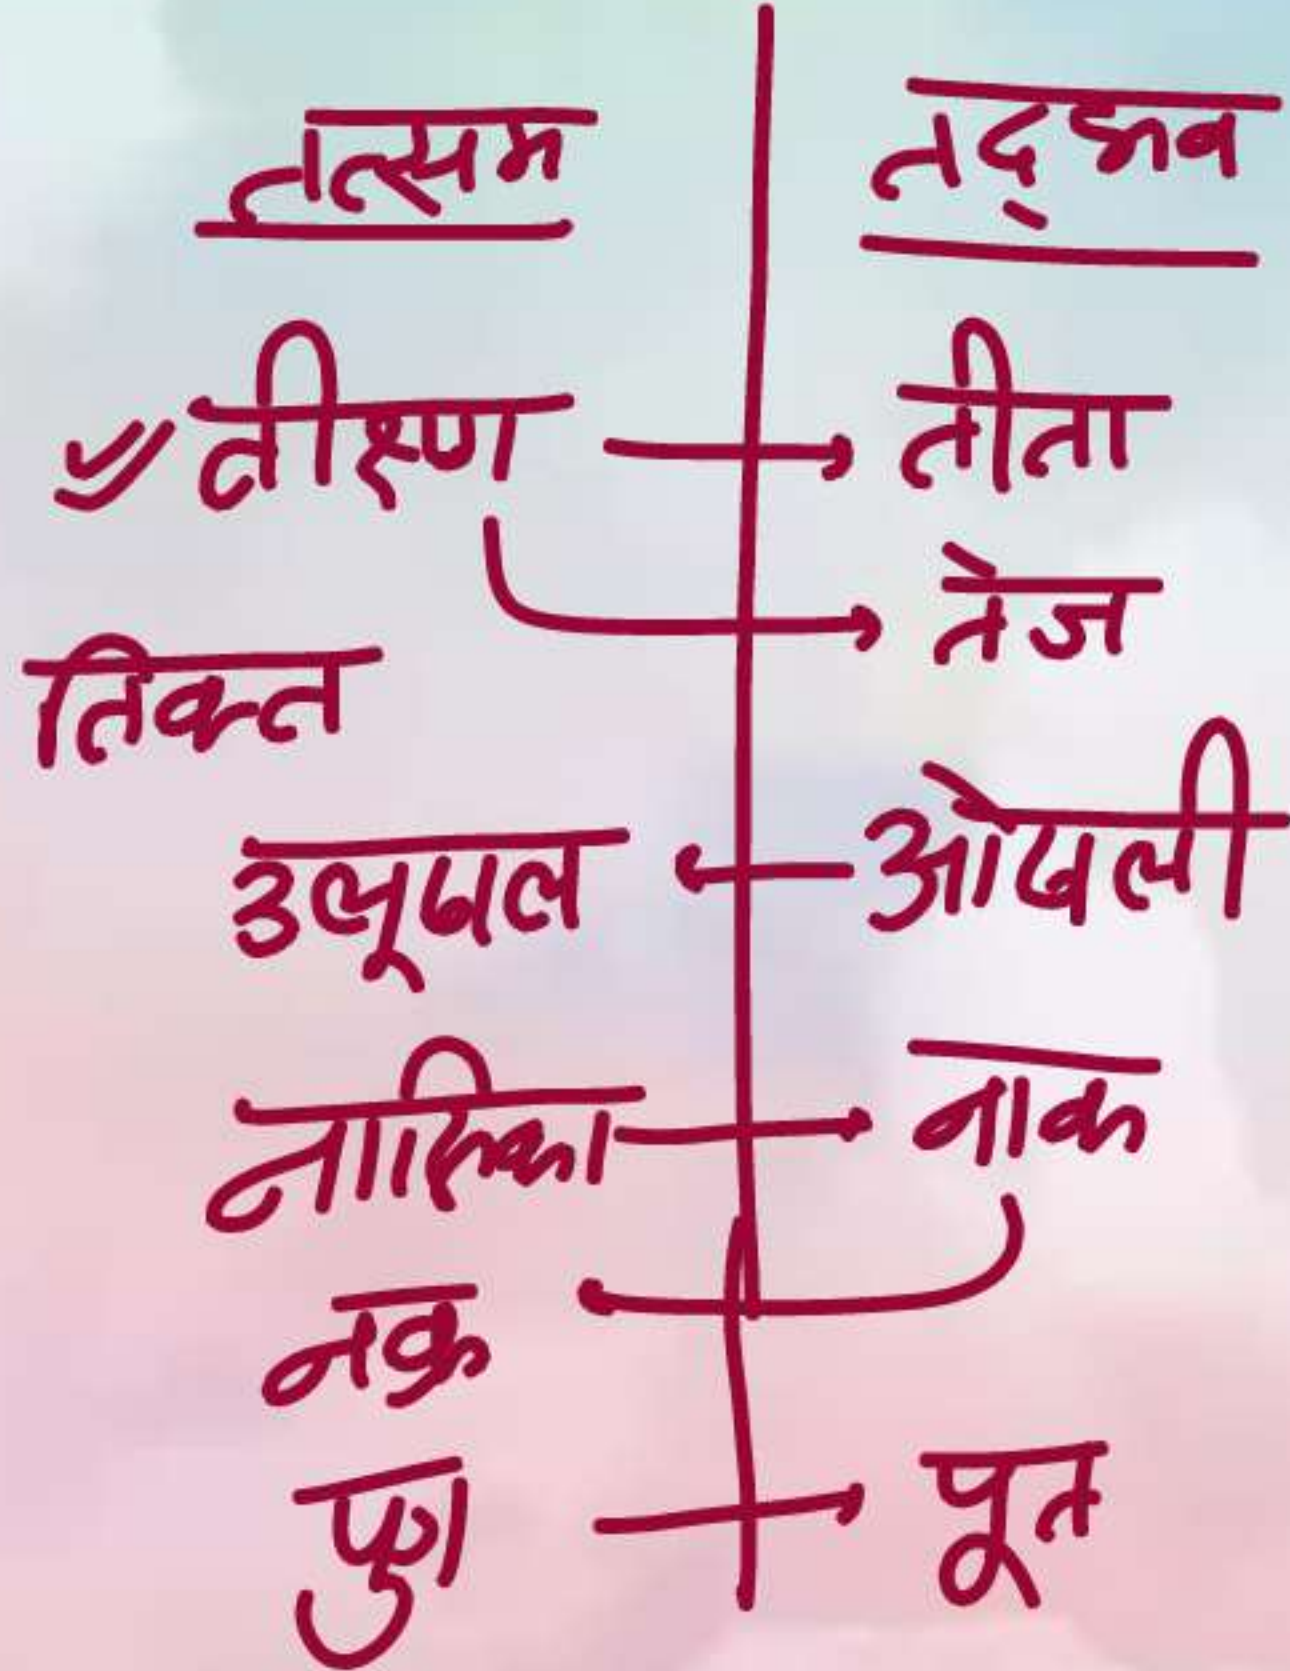 तत्सम तद्भव
तीक्ष्ण → तीता
तेज
तिक्त
उलूखल ← ओखली
नासिका → नाक
नक्र
पुत्र → पूत